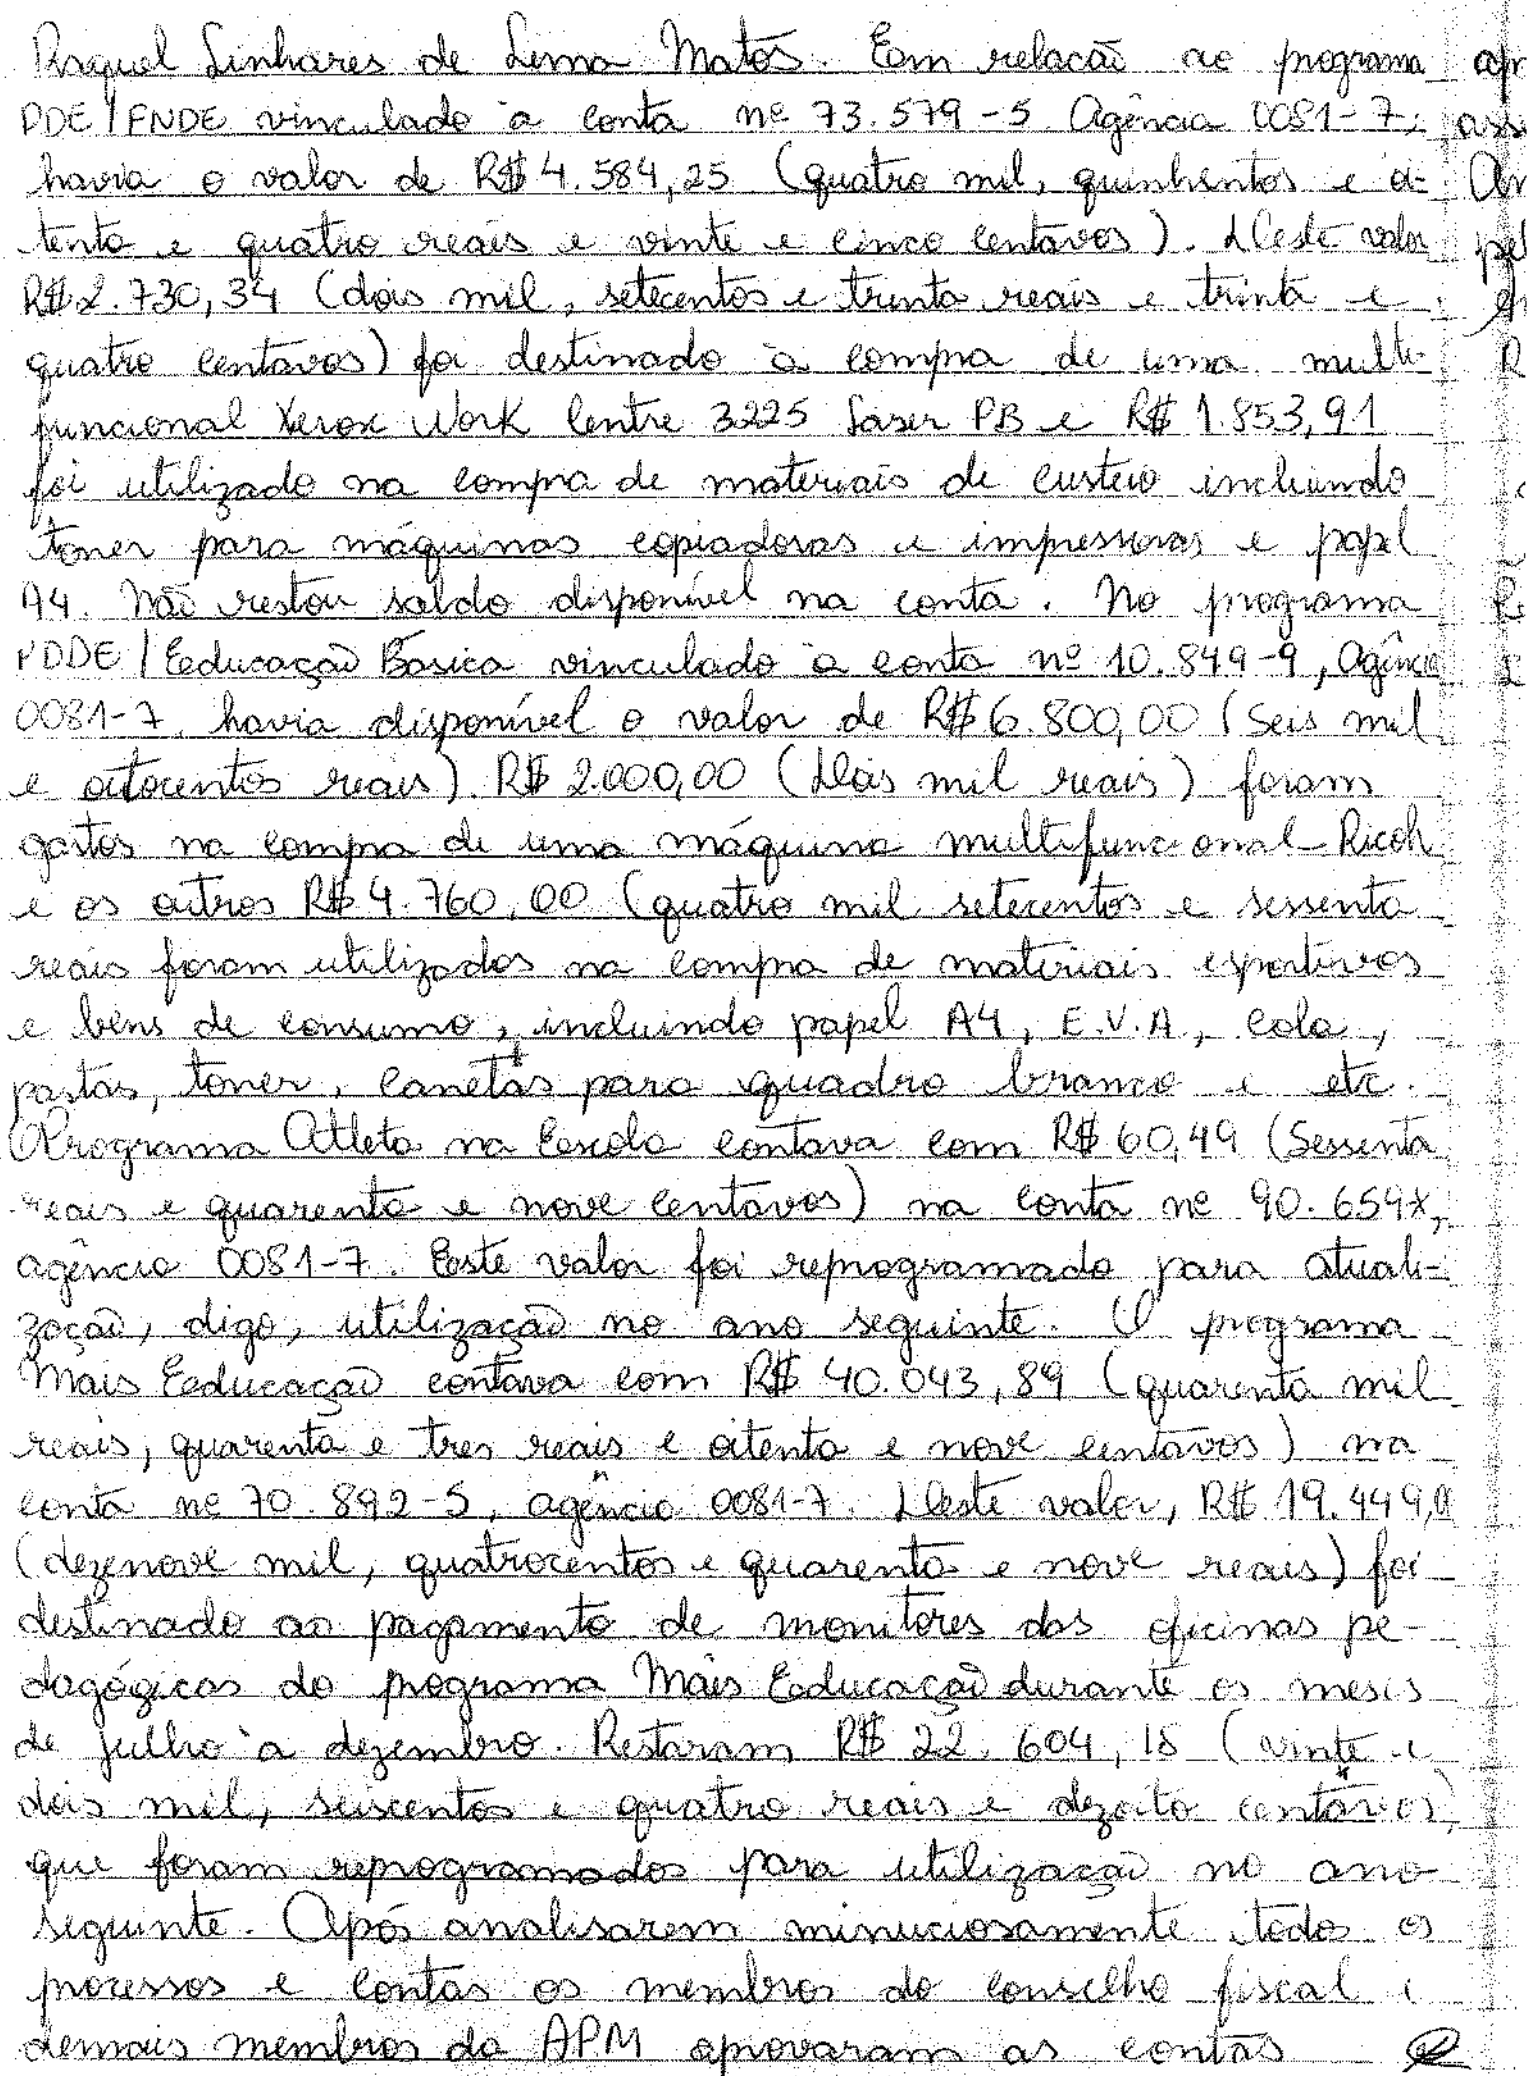 Raquel Linhares de Lima Matos. Em relação ao programa
PDE/FNDE vinculado à conta nº 73.579-5 Agência 0081-7,
havia o valor de R$ 4.584,25 (quatro mil, quinhentos e oi-
tenta e quatro reais e vinte e cinco centavos). Deste valor
R$ 2.730,34 (dois mil, setecentos e trinta reais e trinta e
quatro centavos) foi destinado à compra de uma multi-
funcional Xerox Work Centre 3225 Laser PB e R$ 1.853,91
foi utilizado na compra de materiais de custeio incluindo
toner para máquinas copiadoras e impressoras e papel
A4. Não restou saldo disponível na conta. No programa
PDDE/Educação Básica vinculado à conta nº 10.849-9, Agência
0081-7, havia disponível o valor de R$ 6.800,00 (Seis mil
e oitocentos reais). R$ 2.000,00 (Dois mil reais) foram
gastos na compra de uma máquina multifuncional Ricoh
e os outros R$ 4.760,00 (quatro mil setecentos e sessenta
reais foram utilizados na compra de materiais esportivos
e bens de consumo, incluindo papel A4, E.V.A, cola,
pastas, toner, canetas para quadro branco e etc.
O Programa Atleta na Escola contava com R$ 60,49 (Sessenta
reais e quarenta e nove centavos) na conta nº 90.659x,
agência 0081-7. Este valor foi reprogramado para atuali-
zação, digo, utilização no ano seguinte. O programa
Mais Educação contava com R$ 40.043,89 (quarenta mil
reais, quarenta e tres reais e oitenta e nove centavos) na
conta nº 70.892-5, agência 0081-7. Deste valor, R$ 19.449,
(dezenove mil, quatrocentos e quarenta e nove reais) foi
destinado ao pagamento de monitores das oficinas pe-
dagógicas do programa Mais Educação durante os meses
de julho à dezembro. Restaram R$ 22.604,18 (vinte e
dois mil, seiscentos e quatro reais e dezoito centavos)
que foram reprogramados para utilização no ano
seguinte. Após analisarem minuciosamente todos os
processos e contas os membros do conselho fiscal e
demais membros da APM aprovaram as contas